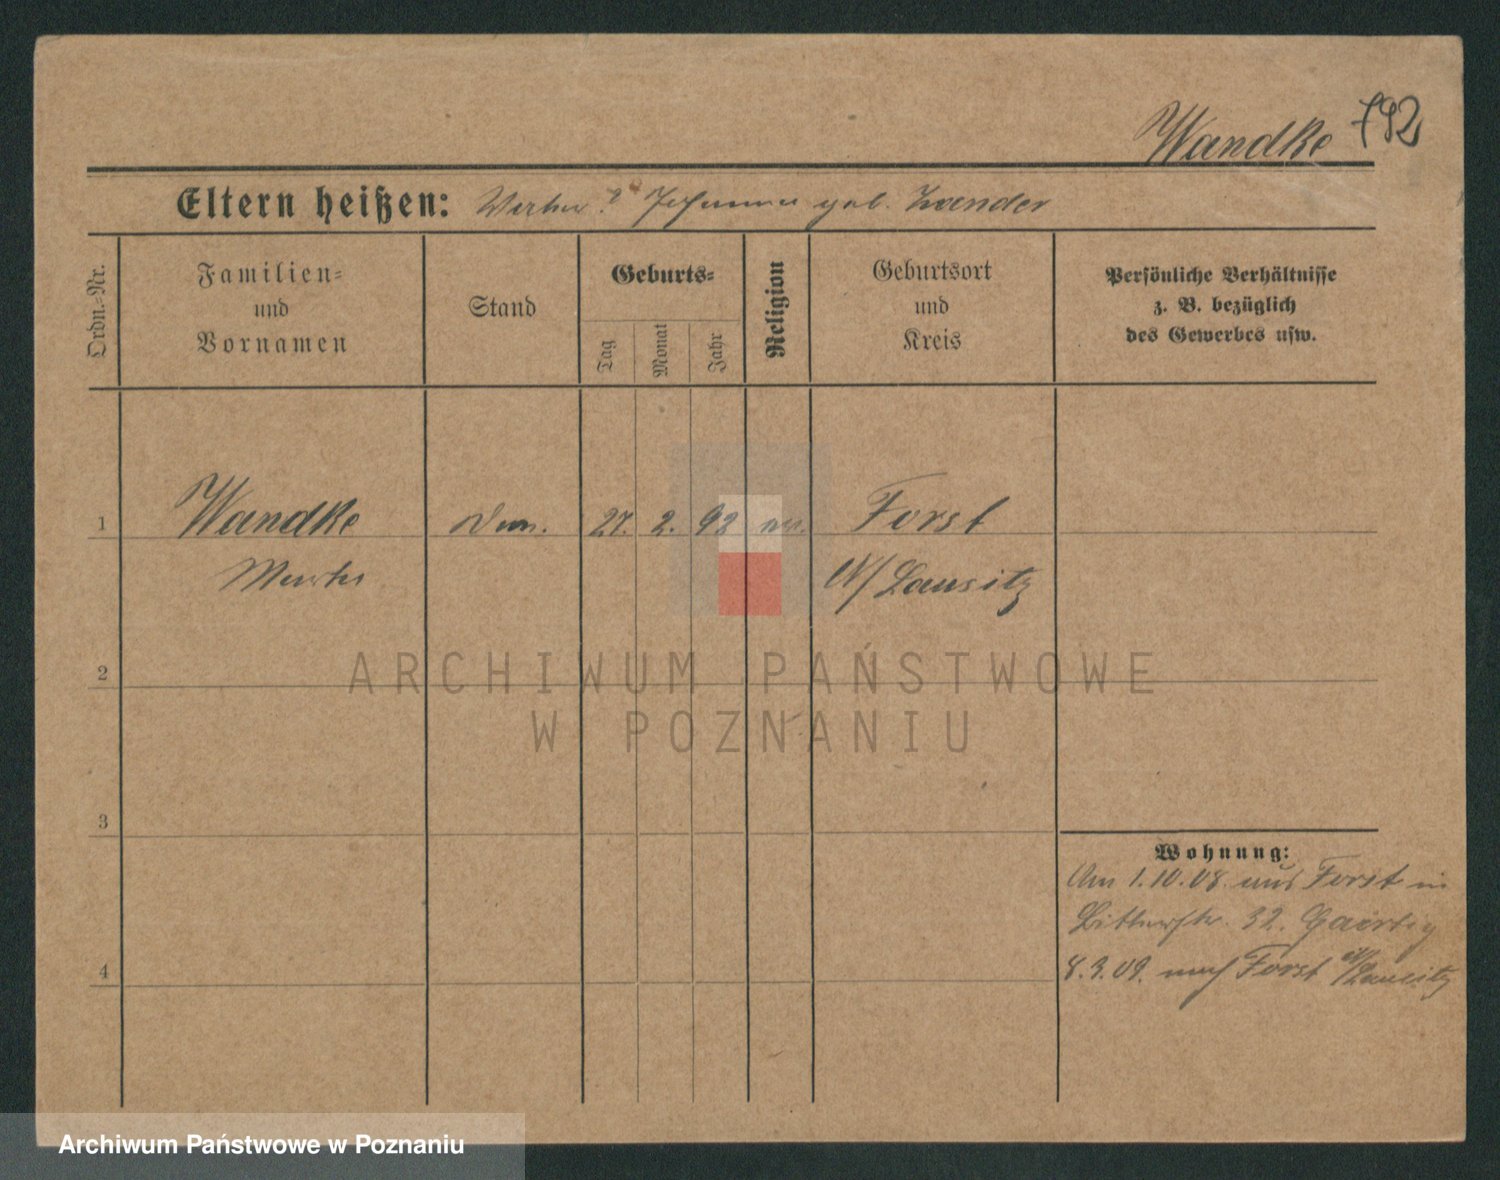 Wandke 792
Eltern heißen: geb. Zwander
Ordn.-Nr.
Familien-
und
Vornamen
Stand
Geburts-
Tag
Monat
Jahr
Religion
Geburtsort
und
Kreis
Persönliche Verhältnisse
z. B. bezüglich
des Gewerbes usw.
1 Wandke 27. 2. 92 Forst
N/Lausitz
2
ARCHIWUM PAŃSTWOWE
W POZNANIU
3
Wohnung:
Am 1.10.08. aus Forst in
Bitterstr. 32.
8.3.09. nach Forst N/Lausitz
4
Archiwum Państwowe w Poznaniu